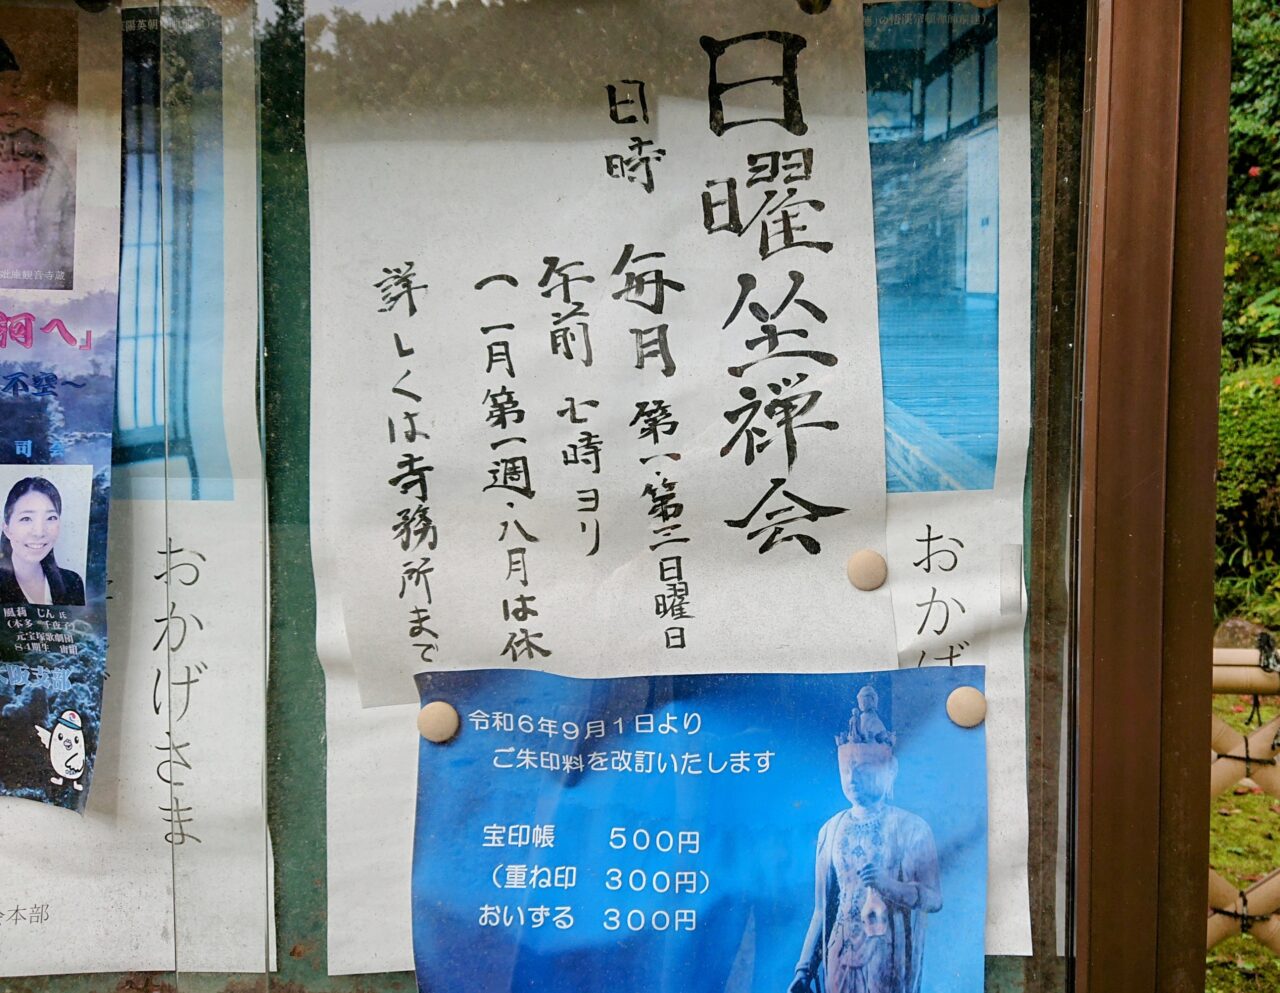 日曜坐禅会
日時
毎月 第一・第三日曜日
午前 七時ヨリ
(一月第一週・八月は休
詳しくは寺務所まで
令和6年9月1日より
ご朱印料を改訂いたします
宝印帳 500円
(重ね印 300円)
おいずる 300円
おかげ
おかげさま
観音寺蔵
訶へ」
不空〜
司会
風莉 じん 氏
(本多 千夜子)
元宝塚歌劇団
84期生 宙組
大阪支部
本部